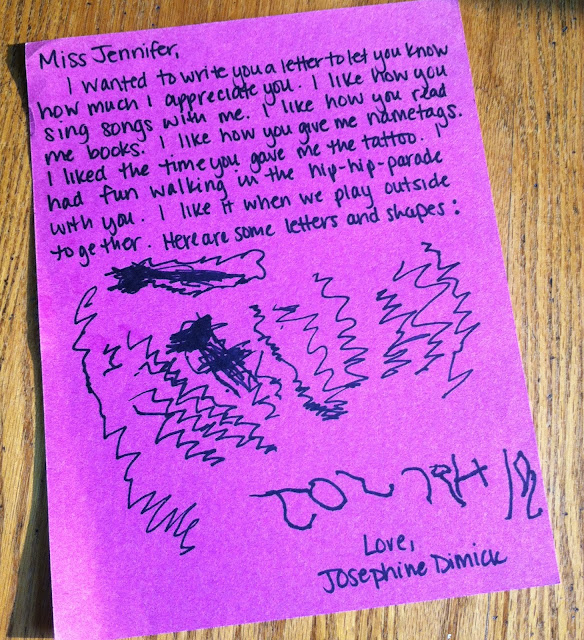 Miss Jennifer,
I wanted to write you a letter to let you know
how much I appreciate you. I like how you
sing songs with me. I like how you read
me books. I like how you give me nametags.
I liked the time you gave me the tattoo. I
had fun walking in the hip-hip-parade
with you. I like it when we play outside
together. Here are some letters and shapes:
Love,
Josephine Dimick